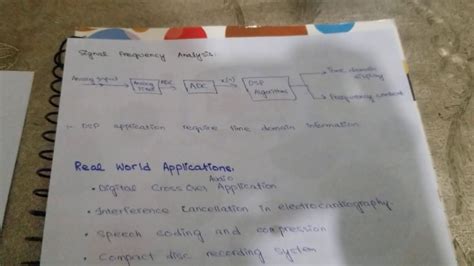 Signal Frequency Analysis.
Analog Signal
Analog
ADC
x(n)
DSP
Algorithm
Time domain
display
Frequency content
DSP application require time domain information
Real World Applications.
• Digital Cross Over Audio Application
• Interference Cancellation in electrocardiography.
• Speech coding and compression
• Compact disc recording system